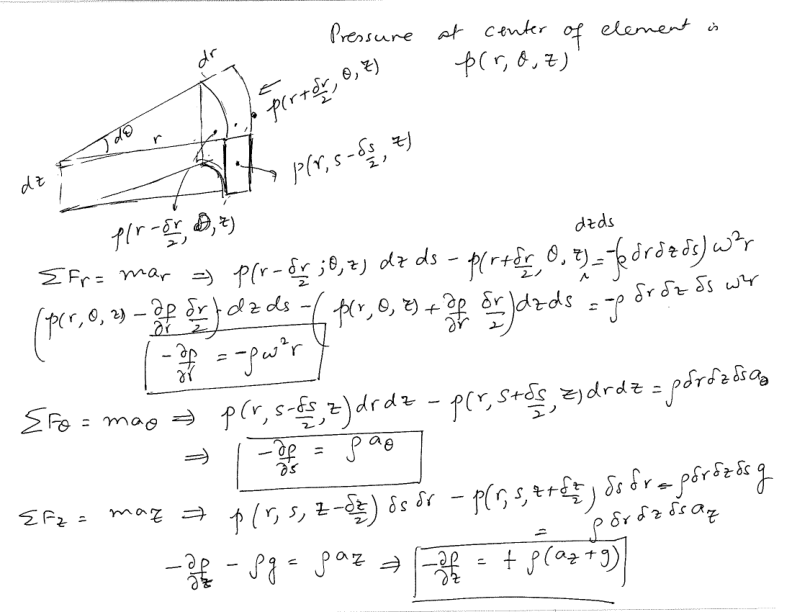 Pressure at center of element is
p(r, θ, z)
dr
dθ
r
dz
p(r+δr/2, θ, z)
p(r, s-δs/2, z)
p(r-δr/2, θ, z)
ΣFr = mar ⇒ p(r-δr/2; θ, z) dz ds - p(r+δr/2, θ, z) dzds = -(ρ δrδzδs) ω²r
(p(r, θ, z) - ∂p/∂r δr/2) dz ds - (p(r, θ, z) + ∂p/∂r δr/2) dzds = -ρ δr δz δs ω²r
-∂p/∂r = -ρω²r
ΣFθ = maθ ⇒ p(r, s-δs/2, z) dr dz - p(r, s+δs/2, z) drdz = ρδrδzδs aθ
⇒ -∂p/∂s = ρaθ
ΣFz = maz ⇒ p(r, s, z-δz/2) δs δr - p(r, s, z+δz/2) δs δr - ρδrδzδs g
= ρ δr δz δs az
-∂p/∂z - ρg = ρaz ⇒ -∂p/∂z = + ρ(az+g)